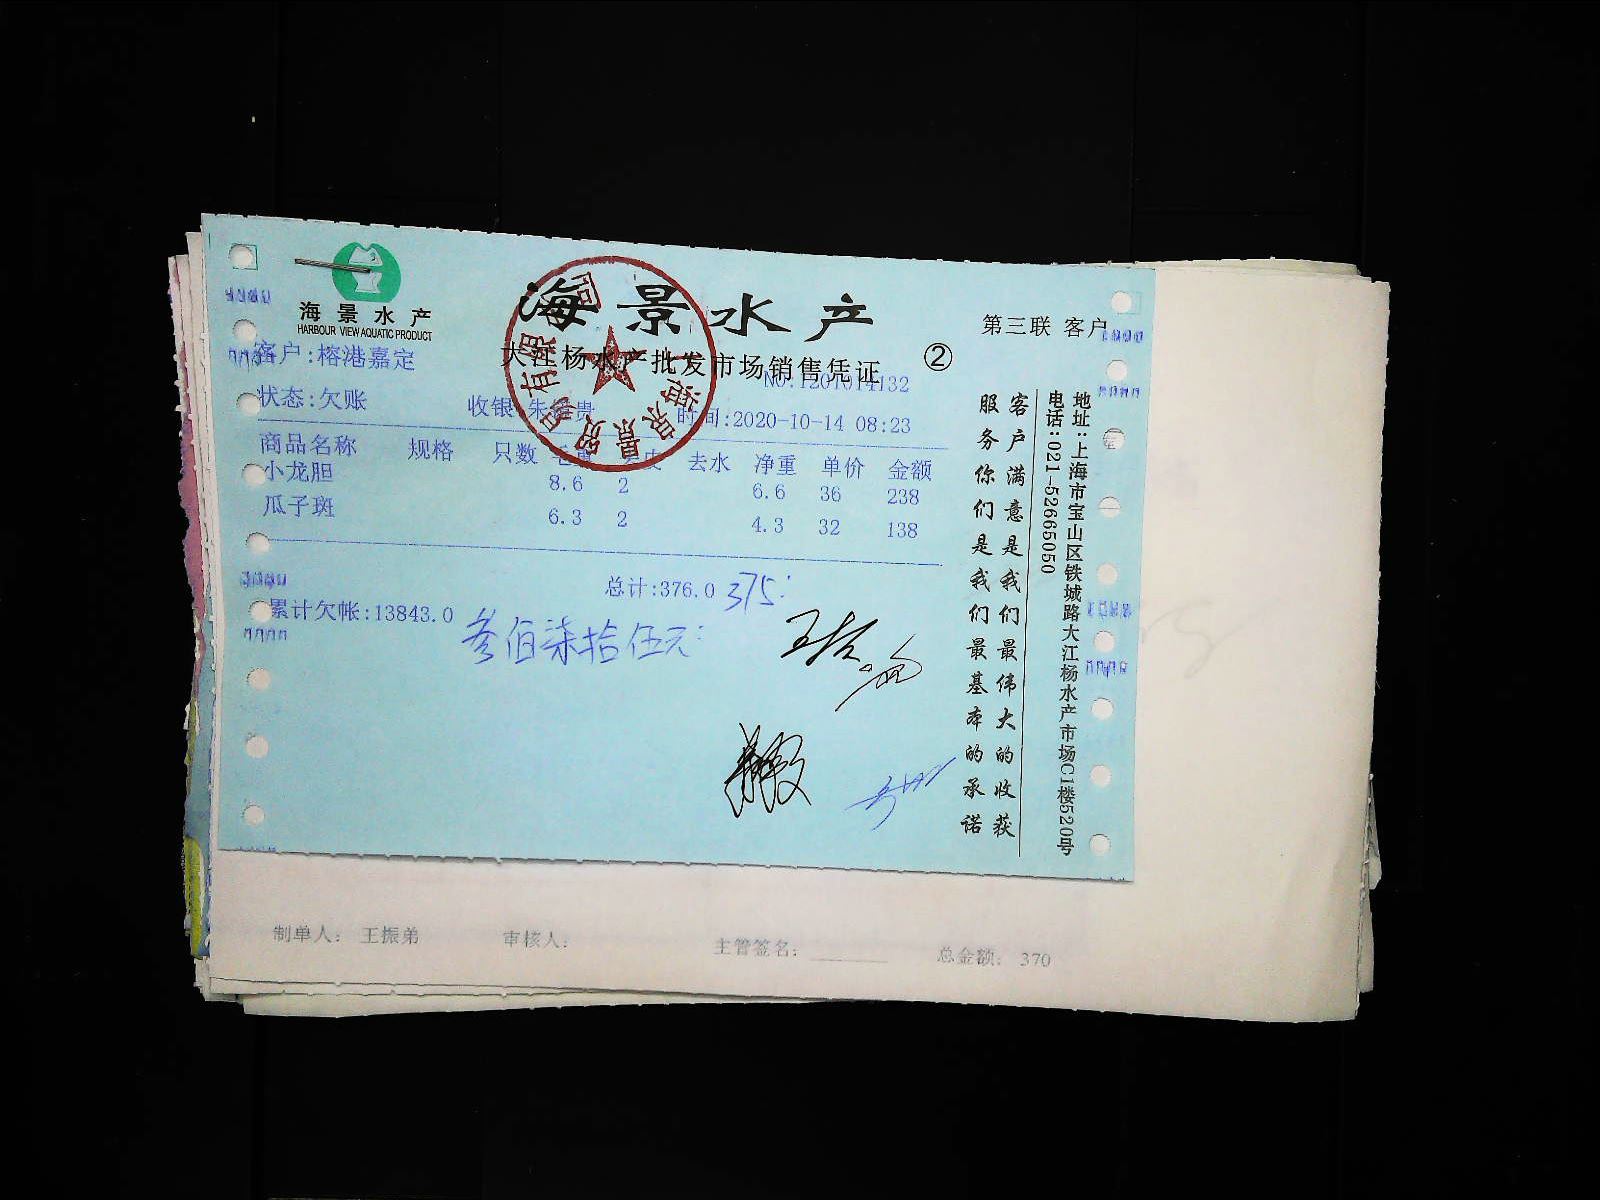 海景水产
HARBOUR VIEW AQUATIC PRODUCT
海景水产
第三联 客户
大江杨水产批发市场销售凭证 ②
客户:榕港嘉定
NO:1201014132
状态:欠账 收银 时间:2020-10-14 08:23
商品名称 规格 只数 毛重 去皮 去水 净重 单价 金额
小龙胆 8.6 2 6.6 36 238
瓜子斑 6.3 2 4.3 32 138
总计:376.0 375
累计欠帐:13843.0
叁佰柒拾伍元
客户满意是我们最伟大的收获
服务你们是我们最基本的承诺
地址:上海市宝山区铁城路大江杨水产市场C1楼520号
电话:021-52665050
制单人: 王振弟 审核人: 主管签名: 总金额: 370